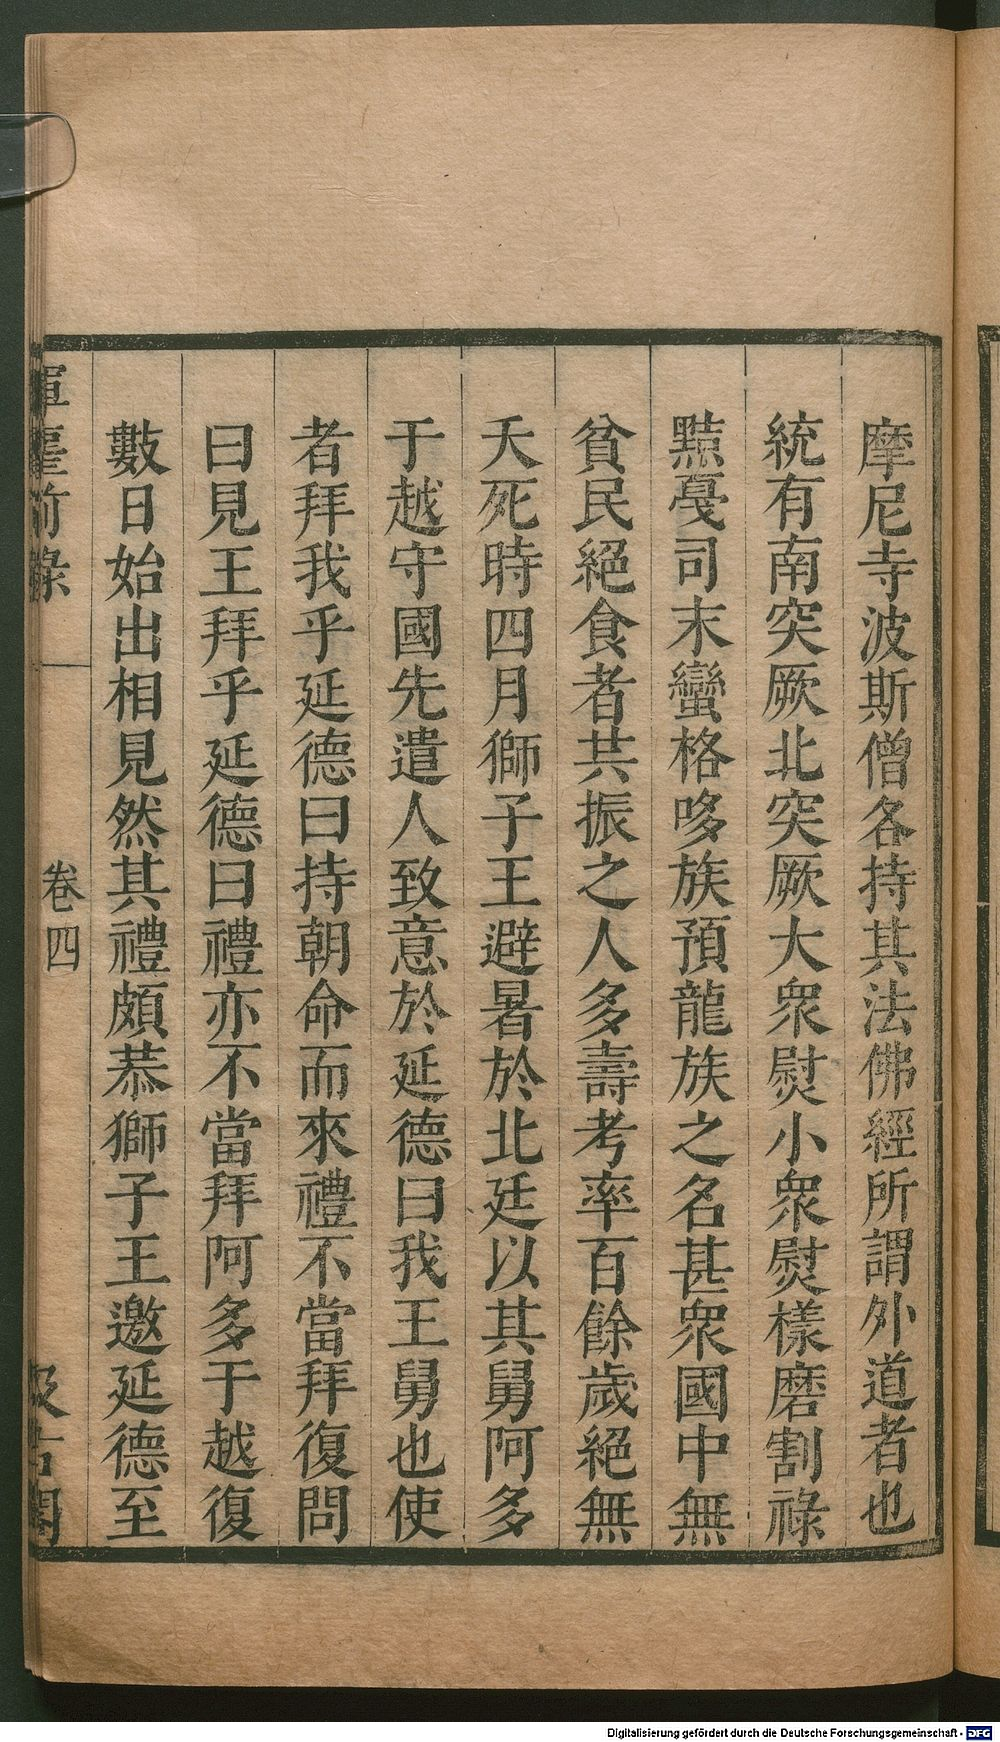 摩尼寺波斯僧各持其法佛經所謂外道者也
統有南突厥北突厥大衆熨小衆熨樣磨割祿
黠戞司末蠻格哆族預龍族之名甚衆國中無
貧民絕食者共振之人多壽考率百餘歲絕無
夭死時四月獅子王避暑於北廷以其舅阿多
于越守國先遣人致意於延德曰我王舅也使
者拜我乎延德曰持朝命而來禮不當拜復問
曰見王拜乎延德曰禮亦不當拜阿多于越復
數日始出相見然其禮頗恭獅子王邀延德至
揮麈前錄
卷四
汲古閣
Digitalisierung gefördert durch die Deutsche Forschungsgemeinschaft - DFG